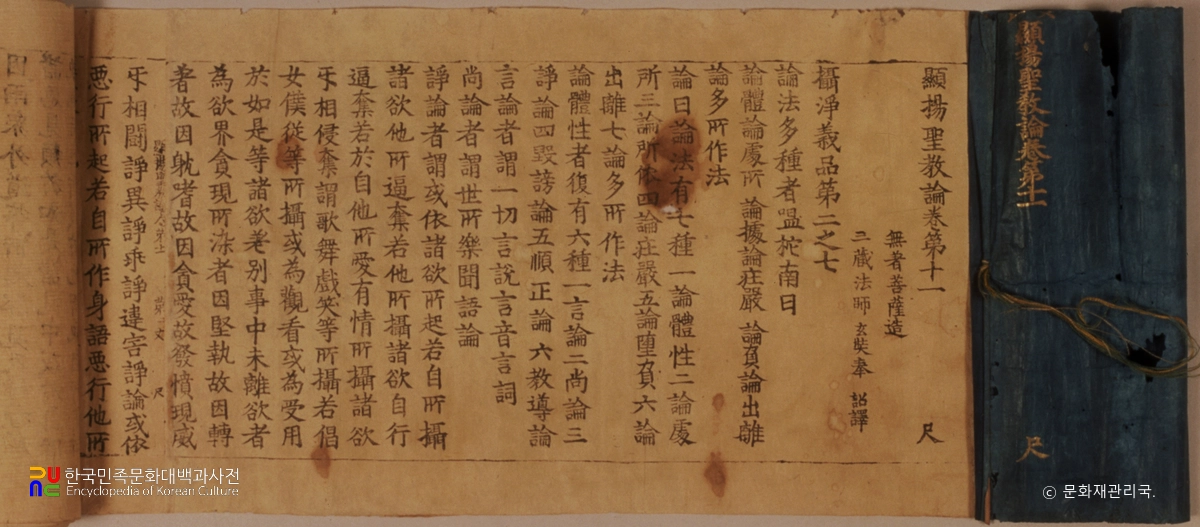 顯揚聖教論卷第十一
尺
顯揚聖教論卷第十一 尺
無著菩薩造
三藏法師玄奘奉 詔譯
攝淨義品第二之七
論法多種者嗢拕南曰
論體論處所 論據論莊嚴 論負論出離
論多所作法
論曰論法有七種一論體性二論處
所三論所依四論莊嚴五論墮負六論
出離七論多所作法
論體性者復有六種一言論二尚論三
諍論四毀謗論五順正論六教導論
言論者謂一切言說言音言詞
尚論者謂世所樂聞語論
諍論者謂或依諸欲所起若自所攝
諸欲他所逼奪若他所攝諸欲自行
逼奪若於自他所愛有情所攝諸欲
互相侵奪謂歌舞戲笑等所攝若倡
女僕從等所攝或為觀看或為受用
於如是等諸欲差别事中未離欲者
為欲界貪現所染者因堅執故因轉
著故因躭嗜故因貪愛故發憤現威
互相鬪諍異諍乖諍違害諍論或依
惡行所起若自所作身語惡行他所
한국민족문화대백과사전
Encyclopedia of Korean Culture
ⓒ 문화재관리국.